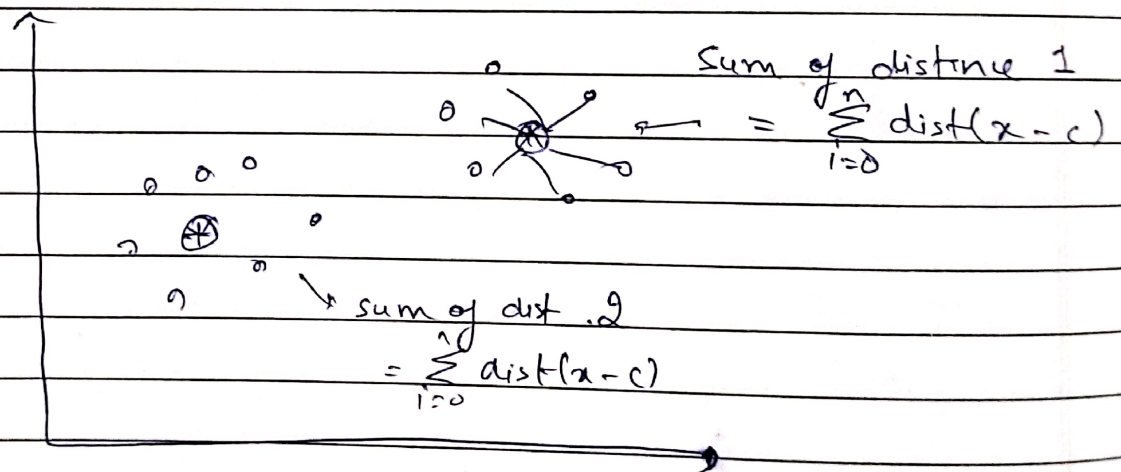 Sum of distance 1
= n∑i=0 dist(x-c)
sum of dist .2
= n∑i=0 dist(x-c)